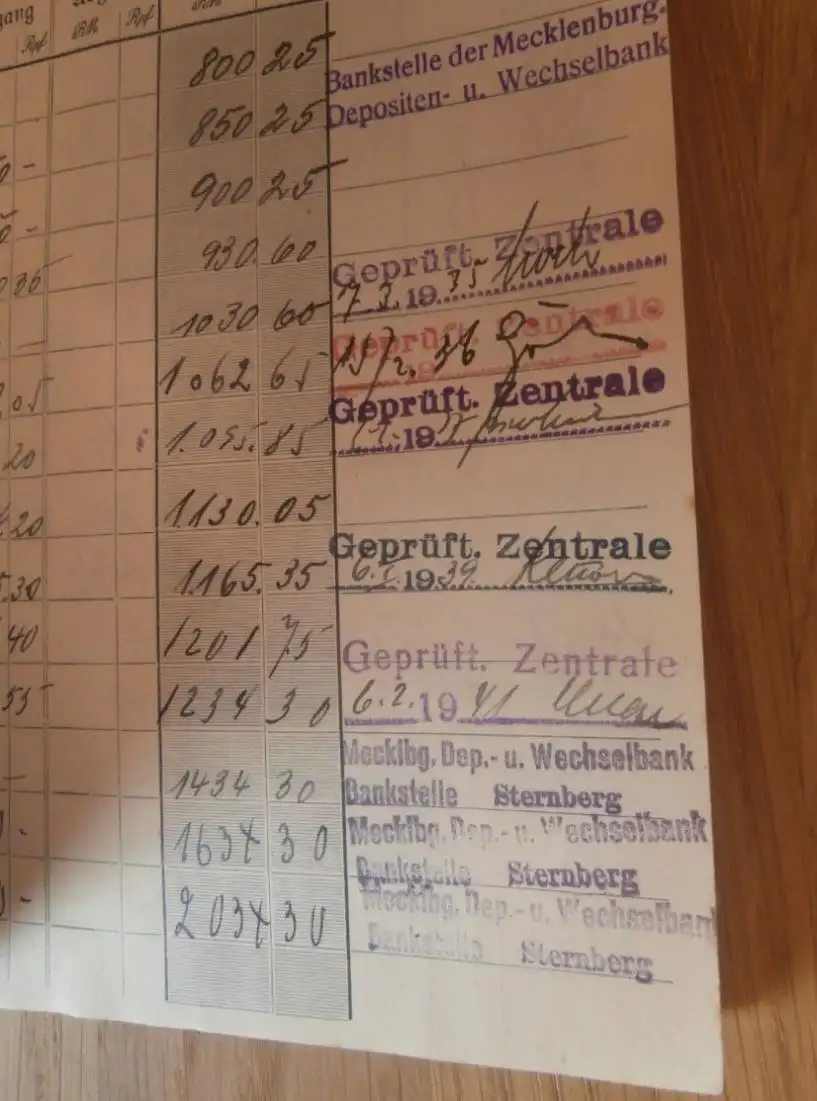 gang
Rpf RM Rpf RM
800 25 Bankstelle der Mecklenburg.
Depositen- u. Wechselbank
850 25
- 900 25
- 930. 60 Geprüft. Zentrale
35 7.3. 1935
1030 60 Geprüft. Zentrale
1062 65 36
05 Geprüft. Zentrale
1.095. 85 19
20
1.130. 05
20 Geprüft. Zentrale
1.165. 35 1939
30
40 1201 75 Geprüft. Zentrale
55 1234 30 6. 2. 1941
Mecklbg. Dep.- u. Wechselbank
1434 30 Bankstelle Sternberg
Mecklbg. Dep.- u. Wechselbank
- 1634 30 Bankstelle Sternberg
Mecklbg. Dep.- u. Wechselbank
- 2034 30 Bankstelle Sternberg